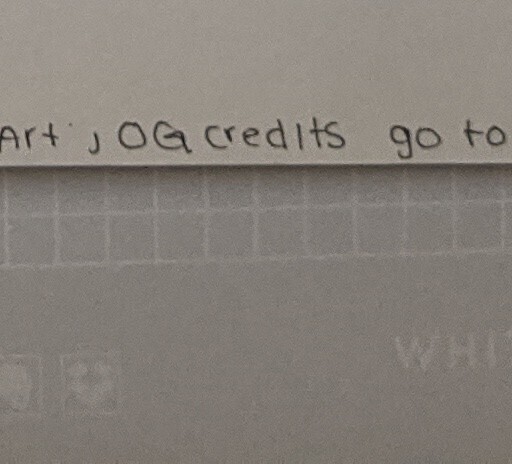 Art ; OG credits go to
WHI